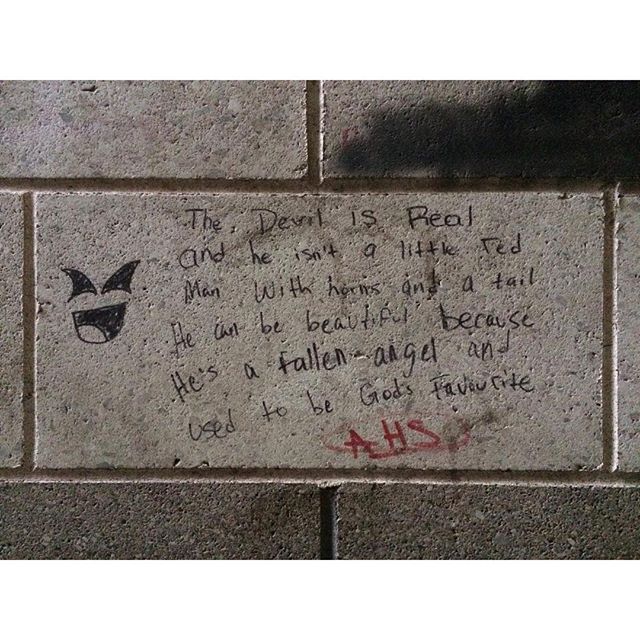 The Devil IS Real
and he isn't a little red
Man With horns and a tail
He can be beautiful because
He's a fallen-angel and
used to be God's Favourite
AHS